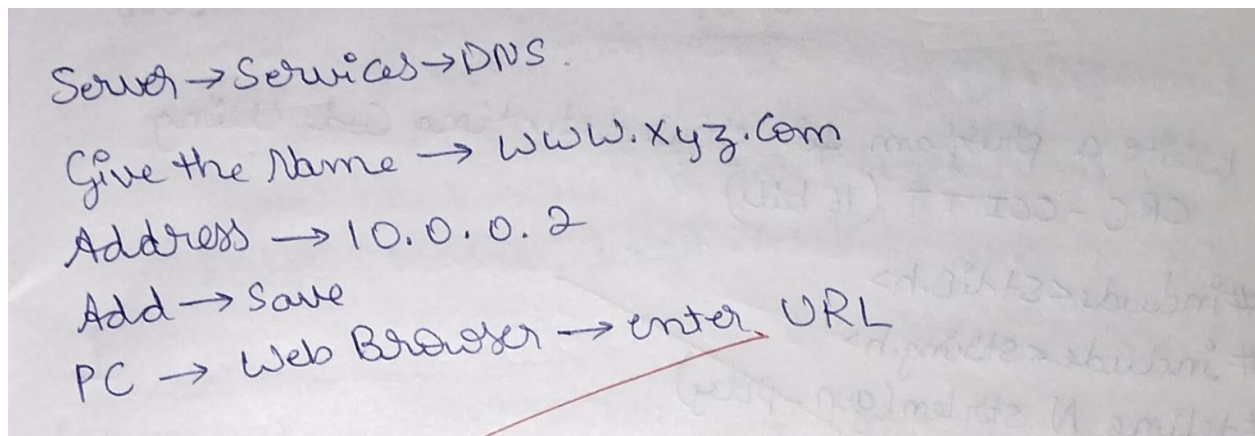 Server → Services → DNS.
Give the Name → www.xyz.com
Address → 10.0.0.2
Add → Save
PC → Web Browser → enter URL